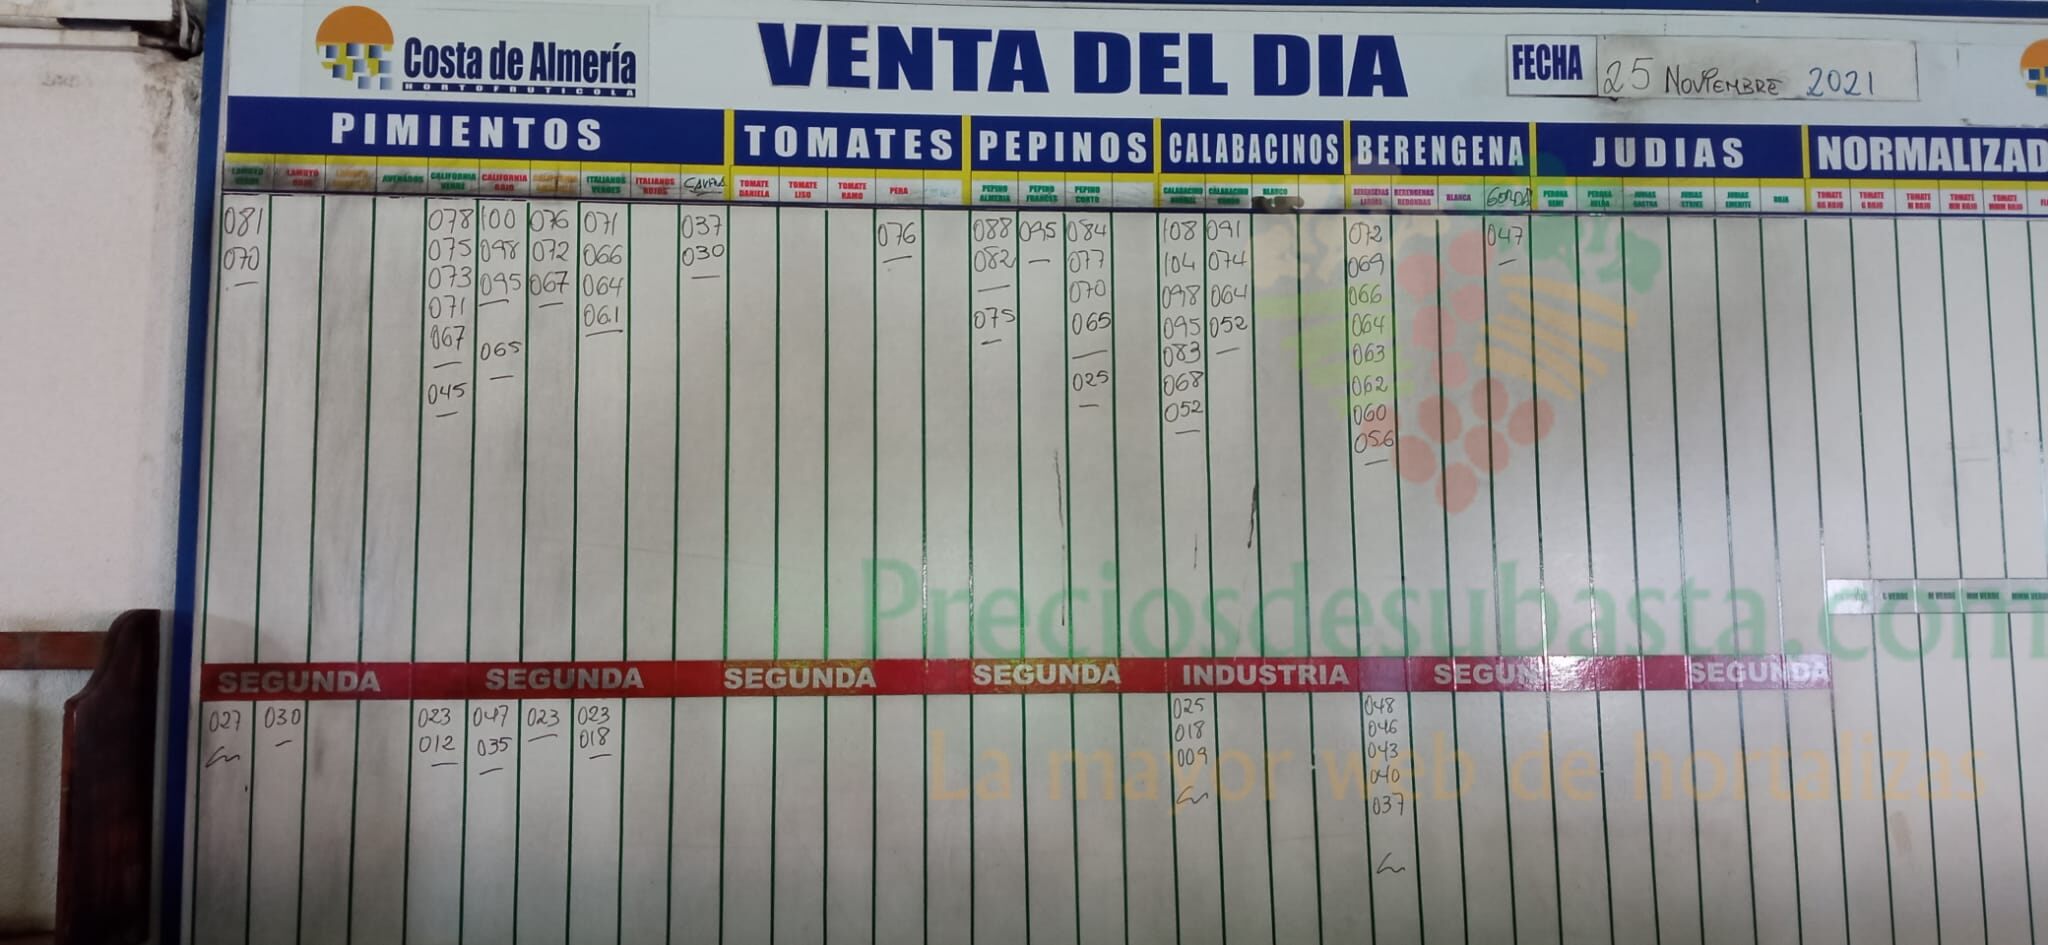 Costa de Almería
HORTOFRUTICOLA
VENTA DEL DIA
FECHA 25 NOVIEMBRE 2021
PIMIENTOS TOMATES PEPINOS CALABACINOS BERENGENA JUDIAS NORMALIZAD
LAMUYO VERDE LAMUYO ROJO CALIFORNIA VERDE CALIFORNIA ROJO ITALIANOS VERDES ITALIANOS ROJOS TOMATE DANIELA TOMATE LISO TOMATE RAMO PERA PEPINO ALMERIA PEPINO FRANCES PEPINO CORTO CALABACINO GORDO BLANCO BERENGENAS LARGAS BERENGENAS REDONDAS BLANCA GORDA PERONA SEMI JUDIAS STRIKE JUDIAS EMERITE ROJA
081 078 100 076 071 037 076 088 095 084 108 091 072 047
070 075 098 072 066 030 082 077 104 074 069
073 095 067 064 070 098 064 066
071 061 075 065 095 052 064
067 065 083 063
045 025 068 062
052 060
056
Preciosdesubasta.com
La mayor web de hortalizas
L VERDE M VERDE MM VERDE
SEGUNDA SEGUNDA SEGUNDA SEGUNDA INDUSTRIA SEGUN SEGUNDA
027 030 023 047 023 023 025 048
012 035 018 018 046
009 043
040
037